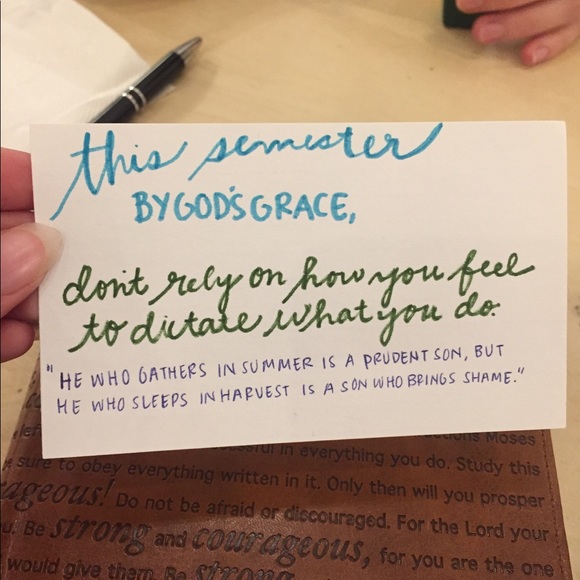 this semester
BY GOD'S GRACE,
don't rely on how you feel
to dictate what you do.
"HE WHO GATHERS IN SUMMER IS A PRUDENT SON, BUT
HE WHO SLEEPS IN HARVEST IS A SON WHO BRINGS SHAME."
Moses
in everything you do. Study this
sure to obey everything written in it. Only then will you prosper
ageous! Do not be afraid or discouraged. For the Lord your
Be strong and courageous, for you are the one
would give them. Be strong